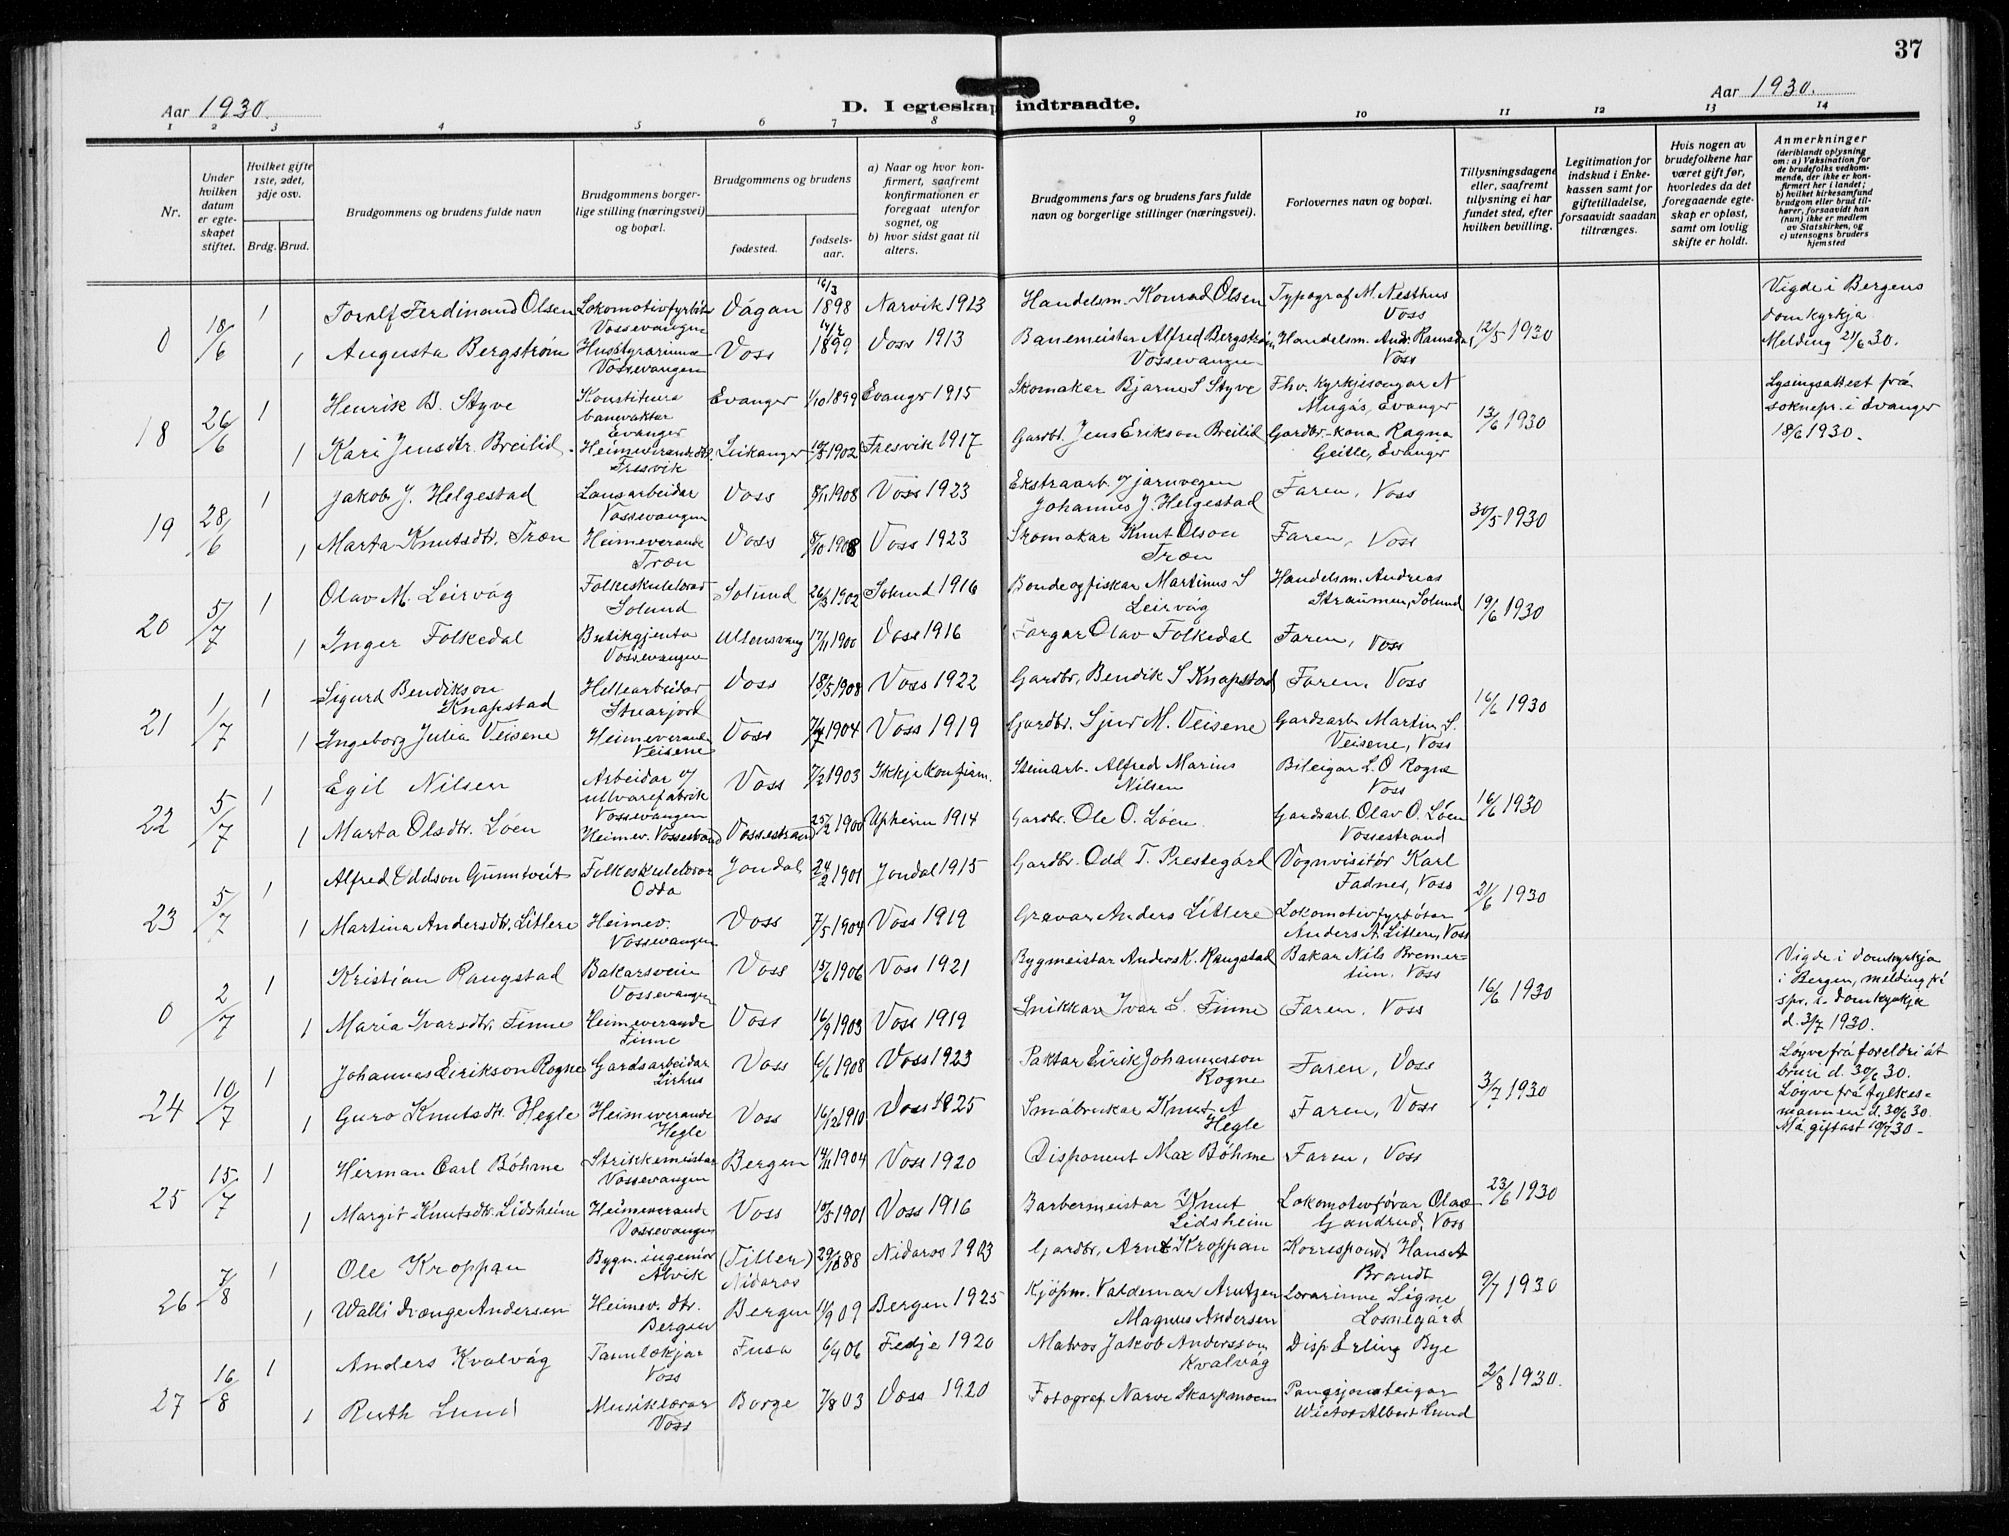 37
Aar 1930.
D. I egteskap indtraadte.
Aar 1930.
1 2 3 4 5 6 7 8 9 10 11 12 13 14
Nr.
Under hvilken datum er egteskapet stiftet.
Hvilket gifte 1ste, 2det, 3dje osv.
Brdg. Brud.
Brudgommens og brudens fulde navn
Brudgommens borgerlige stilling (næringsvei) og bopæl.
Brudgommens og brudens
fødested.
fødselsaar.
a) Naar og hvor konfirmert, saafremt konfirmationen er foregaat utenfor sognet, og
b) hvor sidst gaat til alters.
Brudgommens fars og brudens fars fulde navn og borgerlige stillinger (næringsvei).
Forlovernes navn og bopæl.
Tillysningsdagene eller, saafremt tillysning ei har fundet sted, efter hvilken bevilling.
Legitimation for indskud i Enkekassen samt for giftetilladelse, forsaavidt saadan tiltrænges.
Hvis nogen av brudefolkene har været gift før, hvorledes da det foregaaende egteskap er opløst, samt om lovlig skifte er holdt.
Anmerkninger
(deriblandt oplysning om: a) Vaksination for de brudefolks vedkommende, der ikke er konfirmert her i landet; b) hvilket kirkesamfund brudgom eller brud tilhører, forsaavidt han (hun) ikke er medlem av Statskirken, og c) utensogns bruders hjemsted
0 18/6 1 Toralf Ferdinand Olsen Vossevangen Vågan 16/3 1898 Narvik 1913 Handelsm. Konrad Olsen Typograf M. Nesthus Voss 12/5 1930 Vigde i Bergens domkyrkja Melding 21/6 30.
1 Augusta Bergstrøm Vossevangen Voss 1899 Voss 1913 Banemeister Alfred Bergstrøm Vossevangen Handelsm. Andr. Voss
18 26/6 1 Henrik B. Styve banevaktar Evanger Evanger 1/10 1899 Evanger 1915 Skomakar Bjarne S Styve Fhv. kyrkjesongar N Mugås, Evanger 13/6 1930 Lysingsattest frå soknepr. i Evanger 18/6 1930.
1 Kari Jensdtr. Breilid Fresvik Leikanger 1902 Fresvik 1917 Gardbr. Jens Erikson Breilid Gardbr.-kona Ragna Geitle, Evanger
19 28/6 1 Jakob J. Helgestad Lausarbeidar Vossevangen Voss 8/11 1908 Voss 1923 Ekstraarb. v/ jarnvegen Johannes J. Helgestad Faren, Voss 30/5 1930
1 Marta Knutsdtr. Træn Heimeverande Træn Voss 8/10 1908 Voss 1923 Skomakar Knut Olson Træn Faren, Voss
20 5/7 1 Olav M. Leirvåg Folkeskulelærar Solund Solund 26/3 1902 Solund 1916 Bonde og fiskar Martinus S Leirvåg Handelsm. Andreas Straumen, Solund 19/6 1930
1 Inger Folkedal Butikgjenta Vossevangen Ullensvang 17/11 1900 Voss 1916 Fargar Olav Folkedal Faren, Voss
21 1/7 1 Sigurd Bendikson Knapstad Hellearbeidar Voss 18/5 1908 Voss 1922 Gardbr. Bendik S Knapstad Faren, Voss 16/6 1930
1 Ingeborg Julia Veisene Heimeverande Veisene Voss 1904 Voss 1919 Gardbr. Sjur M. Veisene Gardsarb Martin S. Veisene, Voss
22 5/7 1 Egil Nilsen Arbeidar v/ ullvarefabrik Vossevangen Voss 7/2 1903 Ikkje konfirm. Steinarb. Alfred Marius Nilsen Bileigar L. O Rogne Voss 16/6 1930
1 Marta Olsdtr. Løen Heimev. Vossestrand Vossestrand 25/2 1900 Upheim 1914 Gardbr. Ole O. Løen Gardsarb. Olav O. Løen Vossestrand
23 5/7 1 Alfred Oddson Folkeskulelærar Odda Jondal 24/2 1901 Jondal 1915 Gardbr. Odd T. Prestegård Vognvisitør Karl Fadnes, Voss 21/6 1930
1 Martina Andersdtr. Litlere Heimev. Vossevangen Voss 7/5 1904 Voss 1919 Gravar Anders Litlere Lokomotivfyrbøtar Anders A. Litlere, Voss
0 2/7 1 Kristian Rangstad Bakarsvein Vossevangen Voss 15/6 1906 Voss 1921 Bygmeistar Anders K. Rangstad Bakar Nils Voss 16/6 1930 Vigde i domkyrkja i Bergen, melding frå spr. i domkyrkja d. 3/7 1930.
1 Maria Ivarsdtr. Finne Heimeverande Finne Voss 16/9 1903 Voss 1919 Snikkar Ivar S. Finne Faren, Voss
24 10/7 1 Johannes Eirikson Rogne Gardsarbeidar Voss 6/6 1908 Voss 1923 Paktar Eirik Johannesson Rogne Faren, Voss 3/7 1930 Løyve frå foreldri åt brüri d. 30/6 30. Løyve frå fylkesmannen d. 30/6 30. Må giftast 10/7 30
1 Guro Knutsdtr. Hegle Heimeverande Hegle Voss 16/12 1910 Voss 1925 Småbrukar Knut A Hegle Faren, Voss
25 15/7 1 Herman Carl Böhme Strikkemeistar Vossevangen Bergen 1904 Voss 1920 Disponent Max Böhme Faren, Voss 23/6 1930
1 Margit Knutsdtr. Lidsheim Heimeverande Vossevangen Voss 1901 Voss 1916 Barbermeistar Knut Lidsheim Lokomotivførar Olav Gandrud, Voss
26 7/8 1 Ole Kroppan Bygn. ingeniør Ålvik (Tiller) Nidaros 88 Nidaros 1903 Gardbr. Arnt Kroppan Korrespond. Hans A Brandt 9/7 1930
1 Walli Andersen Heimev. dtr. Bergen Bergen 11/9 09 Bergen 1925 Kjøpm. Valdemar Arntzen Magnus Andersen Lærarinne Signe Losnegård
27 16/8 1 Anders Kvalvåg Tannlækjar Voss Fusa 6/4 06 Fedje 1920 Matros Jakob Andersson Kvalvåg Disp Erling Bye 2/8 1930.
1 Ruth Lund Musiklærar Voss Borge 7/8 03 Voss 1920 Fotograf Narve Skarpmoen Pangsjonateigar Wictor Albert Lund